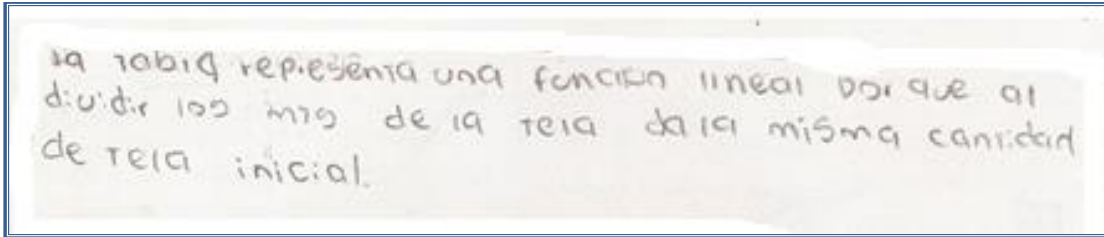 la tabla representa una funcion lineal por que al
dividir los mts de la tela da la misma cantidad
de tela inicial.